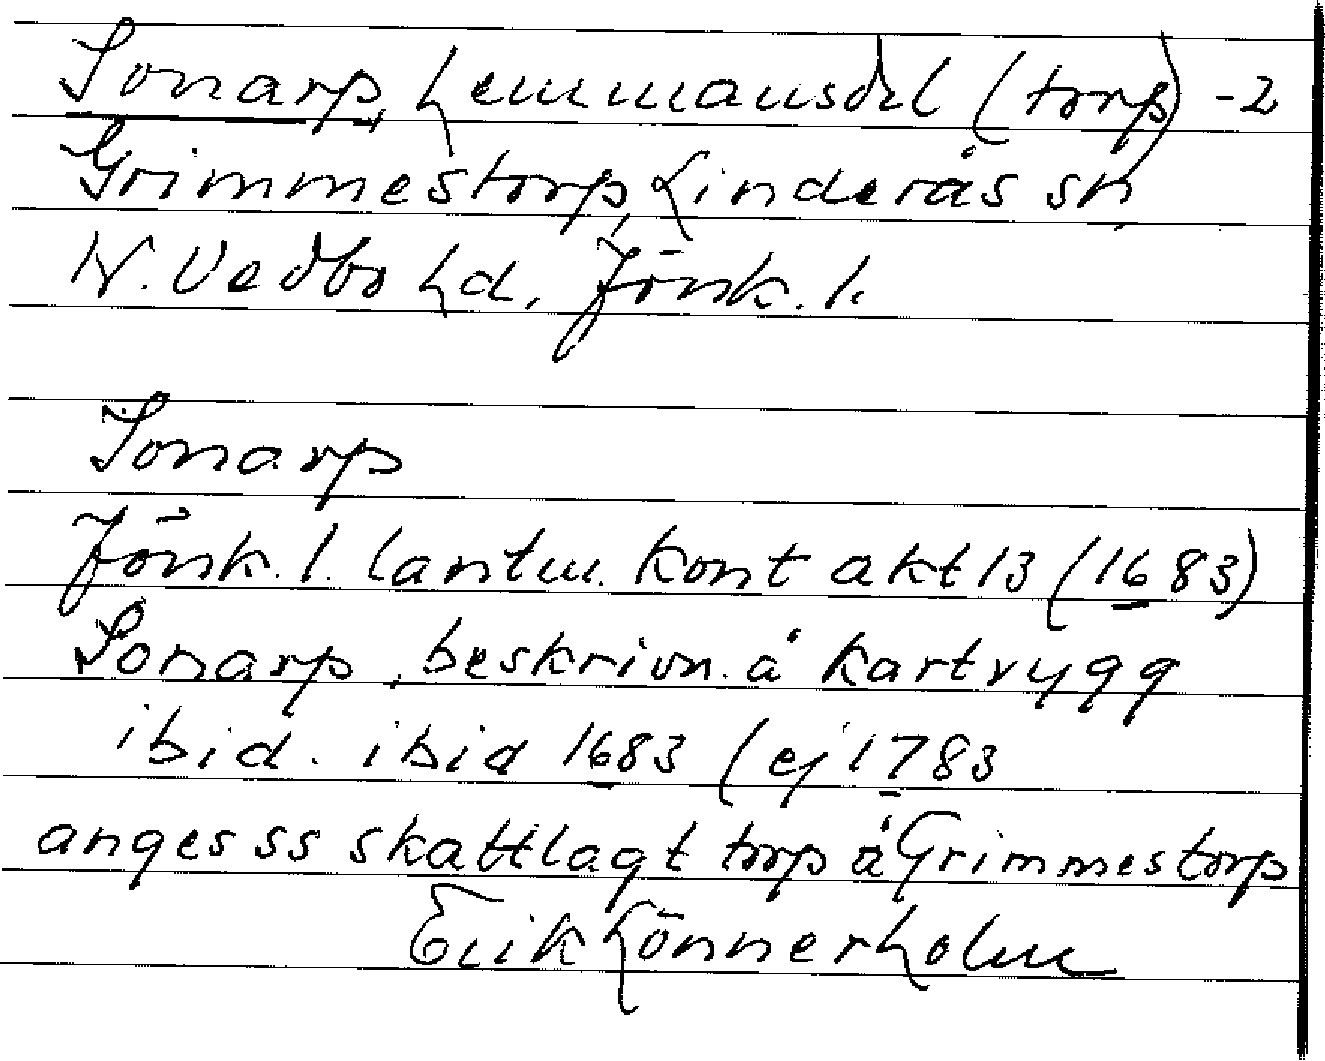 Sonarp, hemmansdel (torp) -2
Grimmestorp, Linderås sn,
N. Vedbo hd, Jönk. l.
Sonarp
Jönk. l. lantm. kont akt 13 (1683)
Sonarp, beskrivn. å kartrygg
ibid. ibid 1683 (ej 1783
anges ss skattlagt torp å Grimmestorp
Erik Lönnerholm